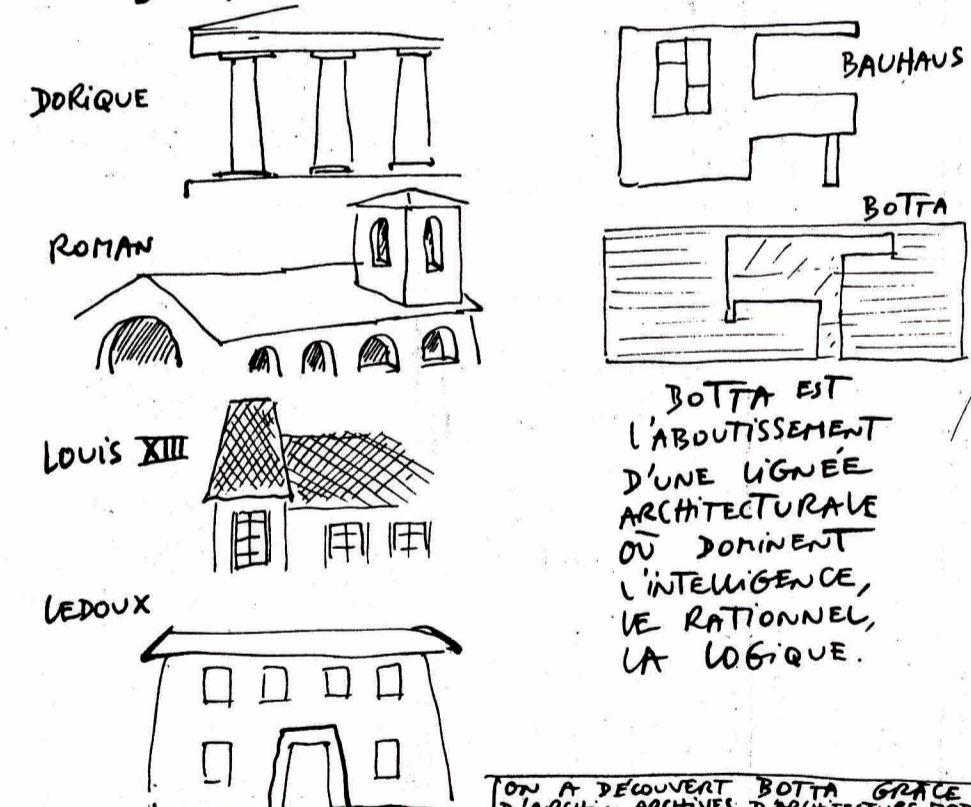 DORIQUE
ROMAN
LOUIS XIII
LEDOUX
BAUHAUS
BOTTA
BOTTA EST
L'ABOUTISSEMENT
D'UNE LIGNÉE
ARCHITECTURALE
OÙ DOMINENT
L'INTELLIGENCE,
LE RATIONNEL,
LA LOGIQUE.
ON A DÉCOUVERT BOTTA GRÂCE